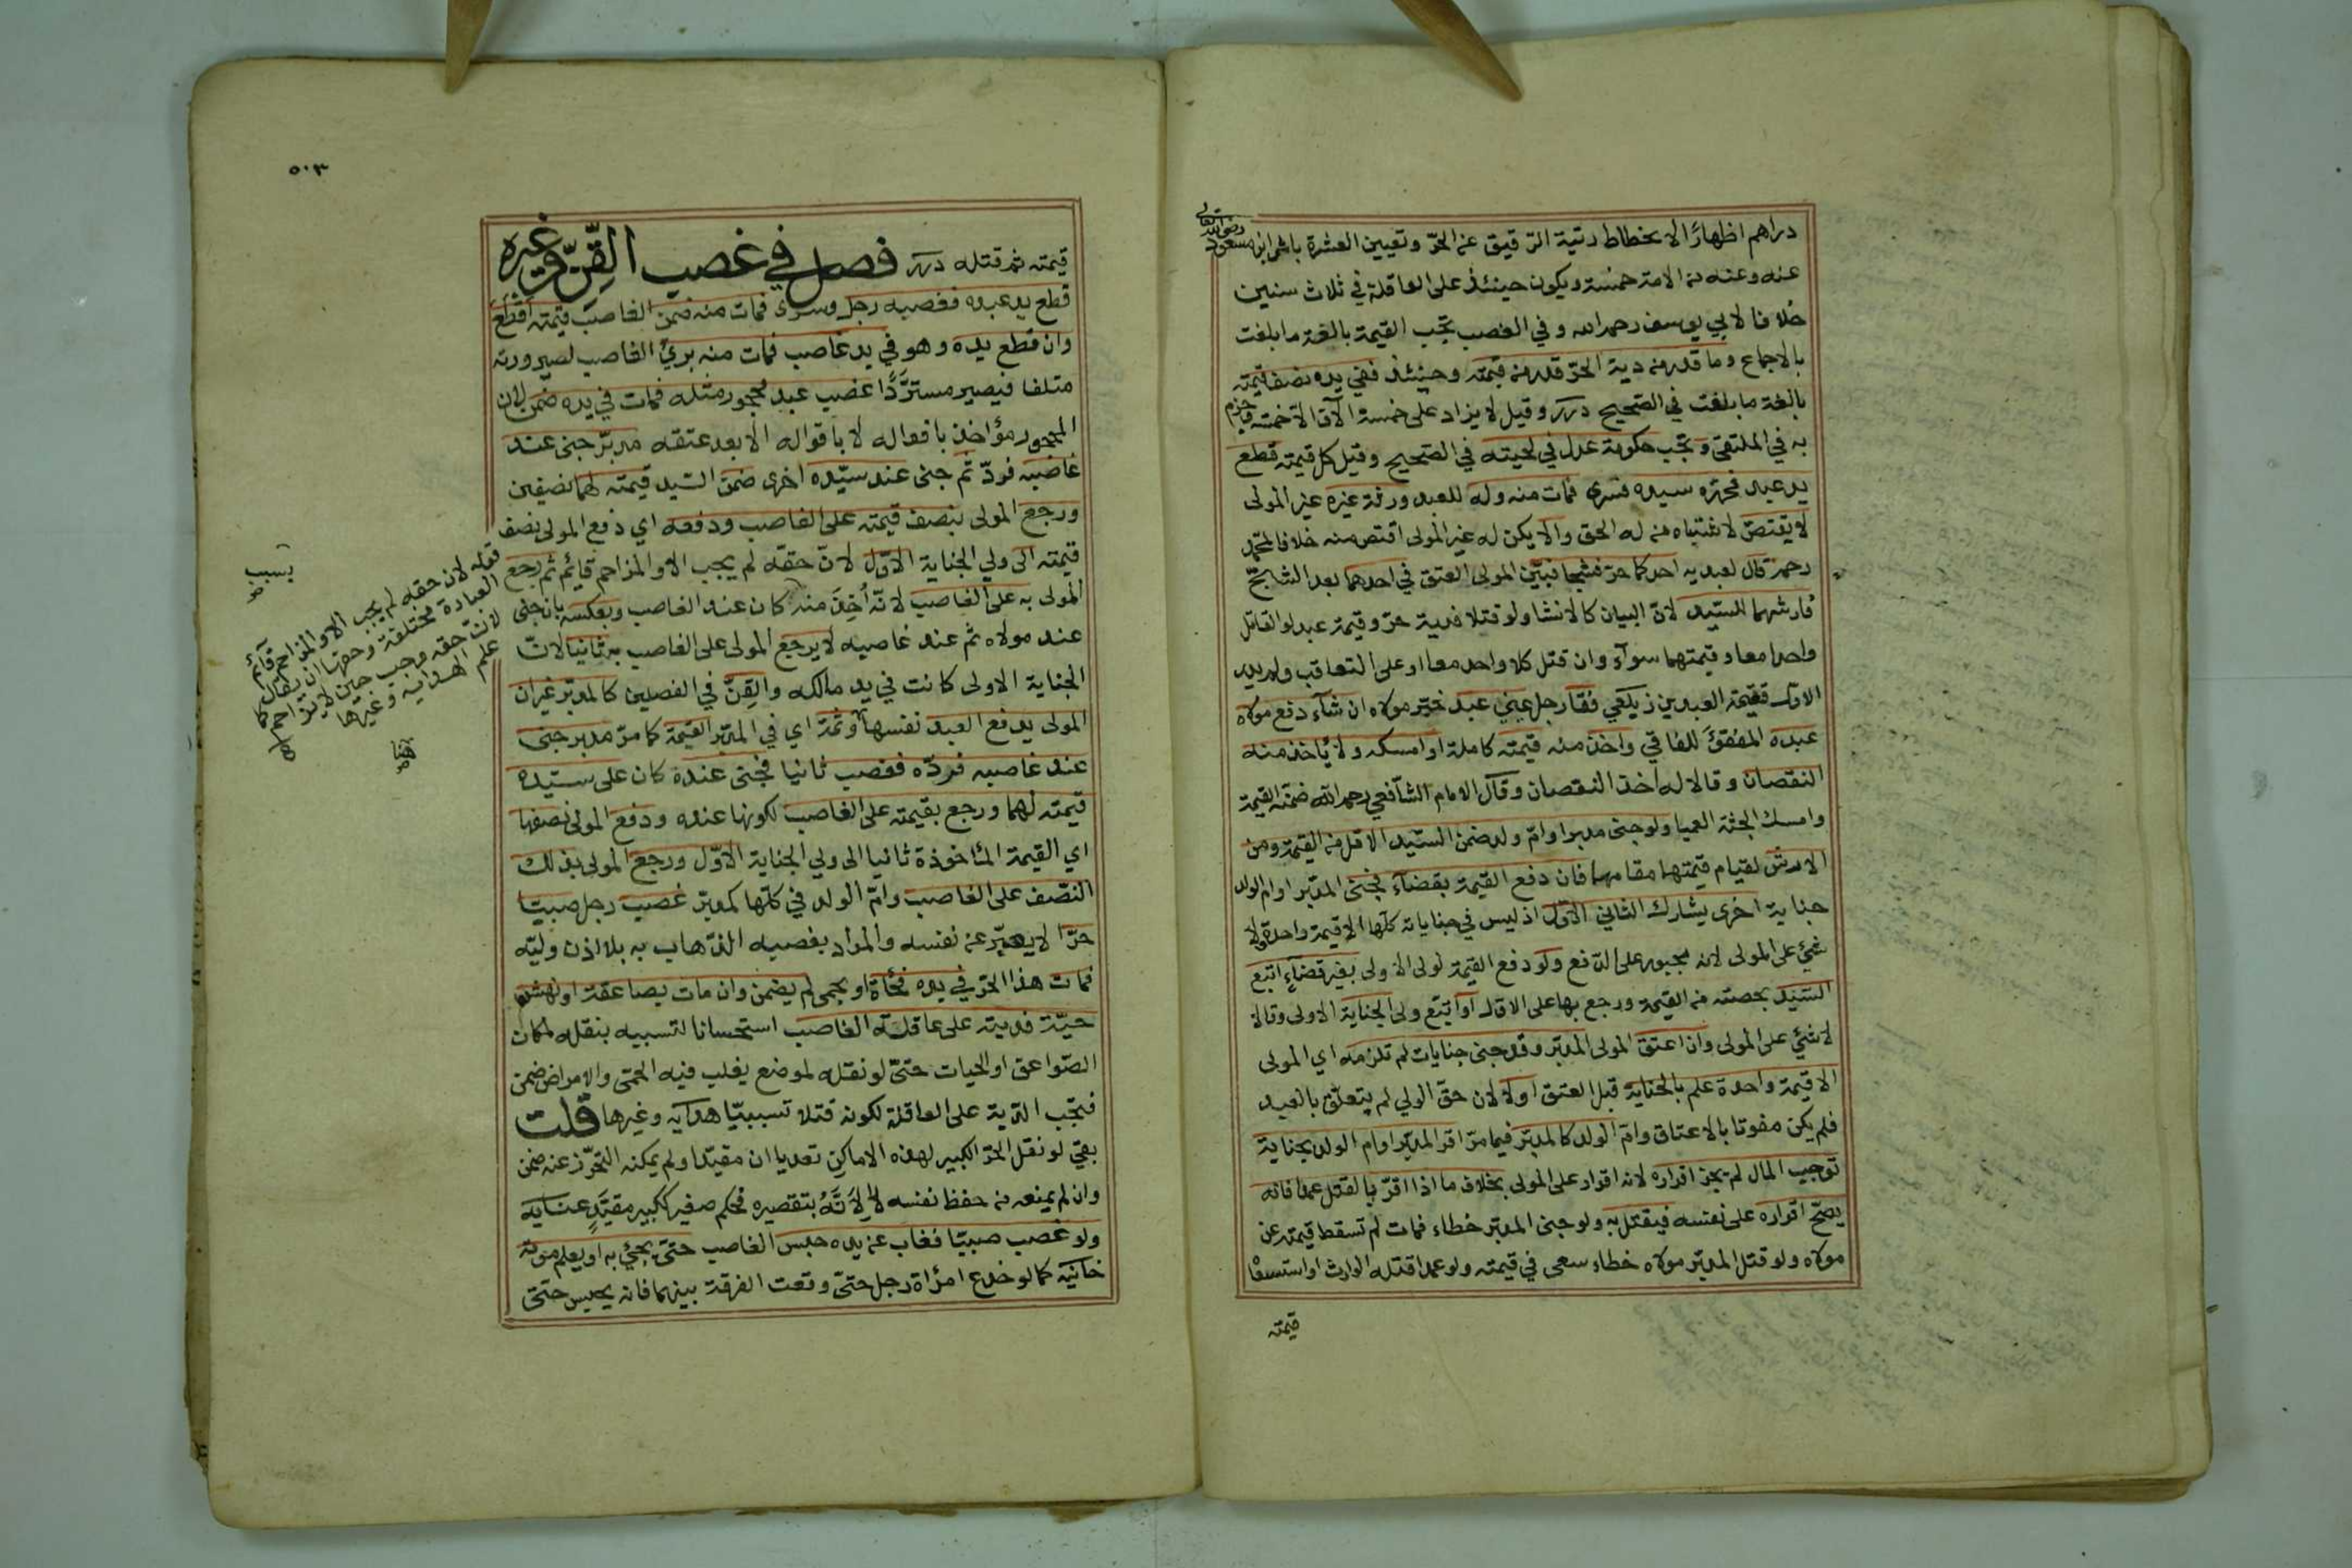 دراهم اظهارًا لانحطاط رتبة الرقيق عن الحرّ وتعيين العشرة باثر ابن مسعود
رضي الله تعالى
عنه وعنه من الامة خمسة ويكون حينئذ على العاقلة في ثلاث سنين
خلافا لابي يوسف رحمه الله وفي الغصب تجب القيمة بالغة ما بلغت
بالاجماع وما قدر من دية الحرّ قدر من قيمته وحينئذ ففي يده نصف قيمته
بالغة ما بلغت في الصحيح درر وقيل لا يزاد على خمسة الآف الا خمسة وجزم
به في الملتقى وتجب حكومة عدل في لحيته في الصحيح وقيل كل قيمته قطع
يد عبد فحرّره سيده فسرى فمات منه وله للعبد ورثة غيره غير المولى
لا يقتصّ لاشتباه من له الحق والا يكن له غير المولى اقتص منه خلافا لمحمّد
رحمه قال لعبديه احدكما حرّ فشجا فبيّن المولى العتق في احدهما بعد الشجّ
فارشهما للسيّد لانّ البيان كالانشا ولو قتلا فدية حرّ وقيمة عبد لو القاتل
واحدا معا وقيمتهما سوآء وان قتل كلا واحد معا او على التعاقب ولم يدر
الاوّل فقيمة العبدين زيلعي فقأ رجل عيني عبد خيّر مولاه ان شآء دفع مولاه
عبده المفقوَّ للفاقي واخذ منه قيمته كاملة او امسكه ولا يأخذ منه
النقصان وقالا له اخذ النقصان وقال الامام الشافعي رحمه الله ضمّنه القيمة
وامسك الجثة العميا ولو جنى مدبر او امّ ولد ضمن السّيد الاقل من القيمة ومن
الارش لقيام قيمتهما مقامهما فان دفع القيمة بقضآء فجنى المدبّر او ام الولد
جناية اخرى يشارك الثاني الاوّل اذ ليس في جناياته كلّها الا قيمة واحدة ولا
شيئ على المولى لانه مجبور على الدّفع ولو دفع القيمة لولى الاولى بغير قضآءٍ اتبع
السّيّد بحصته من القيمة ورجع بها على الاوّل او اتبع ولى الجناية الاولى وقالا
لا شيئ على المولى وان اعتق المولى المدبّر وقد جنى جنايات لم تلزمه اي المولى
الا قيمة واحدة علم بالجناية قبل العتق او لا لان حقّ الولي لم يتعلّق بالعبد
فلم يكن مفوتا بالاعتاق وامّ الولد كالمدبّر فيما مرّ اقر المدبّر او ام الولد بجناية
توجب المال لم يجز اقراره لانه اقرار على المولى بخلاف ما اذا اقرّ بالقتل عمدا فانه
يصحّ اقراره على نفسه فيقتل به ولو جنى المدبّر خطاء فمات لم تسقط قيمته عن
مولاه ولو قتل المدبّر مولاه خطاء سعى في قيمته ولو عمدا قتله الوارث او استسعاه
قيمته
٥٠٣
قيمته ثم قتله درر فصل في غصب القِنّ وغيره
قطع يد عبده فغصبه رجل وسرى فمات منه ضمن الغاصب قيمته اقطع
وان قطع يده وهو في يد غاصب فمات منه برئَ الغاصب لصيرورته
متلفا فيصير مستردًّا غصب عبد محجور مثله فمات في يده ضمن لان
المحجور مؤاخذ بافعاله لا باقواله الا بعد عتقه مدبّر جنى عند
غاصبه فردّ ثم جنى عند سيّده اخرى ضمن السّيد قيمته لهما نصفين
ورجع المولى بنصف قيمته على الغاصب ودفعه اي دفع المولى نصف
قيمته الى ولي الجناية الاوّل لانّ حقّه لم يجب الا والمزاحم قائم ثم رجع
المولى به على الغاصب لانّه أُخِذَ منه كان عند الغاصب وبعكسه بان جنى
عند مولاه ثم عند غاصبه لا يرجع المولى على الغاصب به ثانيا لانّ
الجناية الاولى كانت في يد مالكه والقِنّ في الفصلين كالمدبّر غير ان
المولى يدفع العبد نفسه هنا وثمّة اي في المدبّر القيمة كما مرّ مدبر جنى
عند غاصبه فردّه فغصب ثانيا فجنى عنده كان على سيّده
قيمته لهما ورجع بقيمته على الغاصب لكونها عنده ودفع المولى نصفها
اي القيمة المأخوذة ثانيا الى ولي الجناية الاوّل ورجع المولى بذلك
النّصف على الغاصب وامّ الولد في كلّها كمدبّر غصب رجل صبيّا
حرّا لا يعبّر عن نفسه والمراد بغصبه الذّهاب به بلا اذن وليّه
فمات هذا الحرّ في يده فجأة او بحمى لم يضمن وان مات بصاعقة او نهش
حيّة فديته على عاقلة الغاصب استحسانا لتسببه بنقله لمكان
الصّواعق او الحيات حتّى لو نقله لموضع يغلب فيه الحمّى والامراض ضمن
فتجب الدّية على العاقلة لكونه قتلا تسببيّا هدايه وغيرها قلت
بقي لو نقل الحرّ الكبير لهذه الاماكن تعديا ان مقيّدا ولم يمكنه التحرّز عنه ضمن
وان لم يمنعه من حفظ نفسه لا لِاَنَّهُ بتقصيره فحكم صغير ككبير مقيّدٍ عنايه
ولو غصب صبيّا فغاب عن يده حبس الغاصب حتّى يجيئ به او يعلم موته
خانيّه كما لو خدع امرأة رجل حتّى وقعت الفرقة بينهما فانه يحبس حتّى
بسبب
قوله لان حقه لم يجب الا والمزاحم قائم
العبارة مختلفة وحقها ان يقال
لانّ حقه وجب حين لا يزاحم كما
علم الهدايه وغيرها